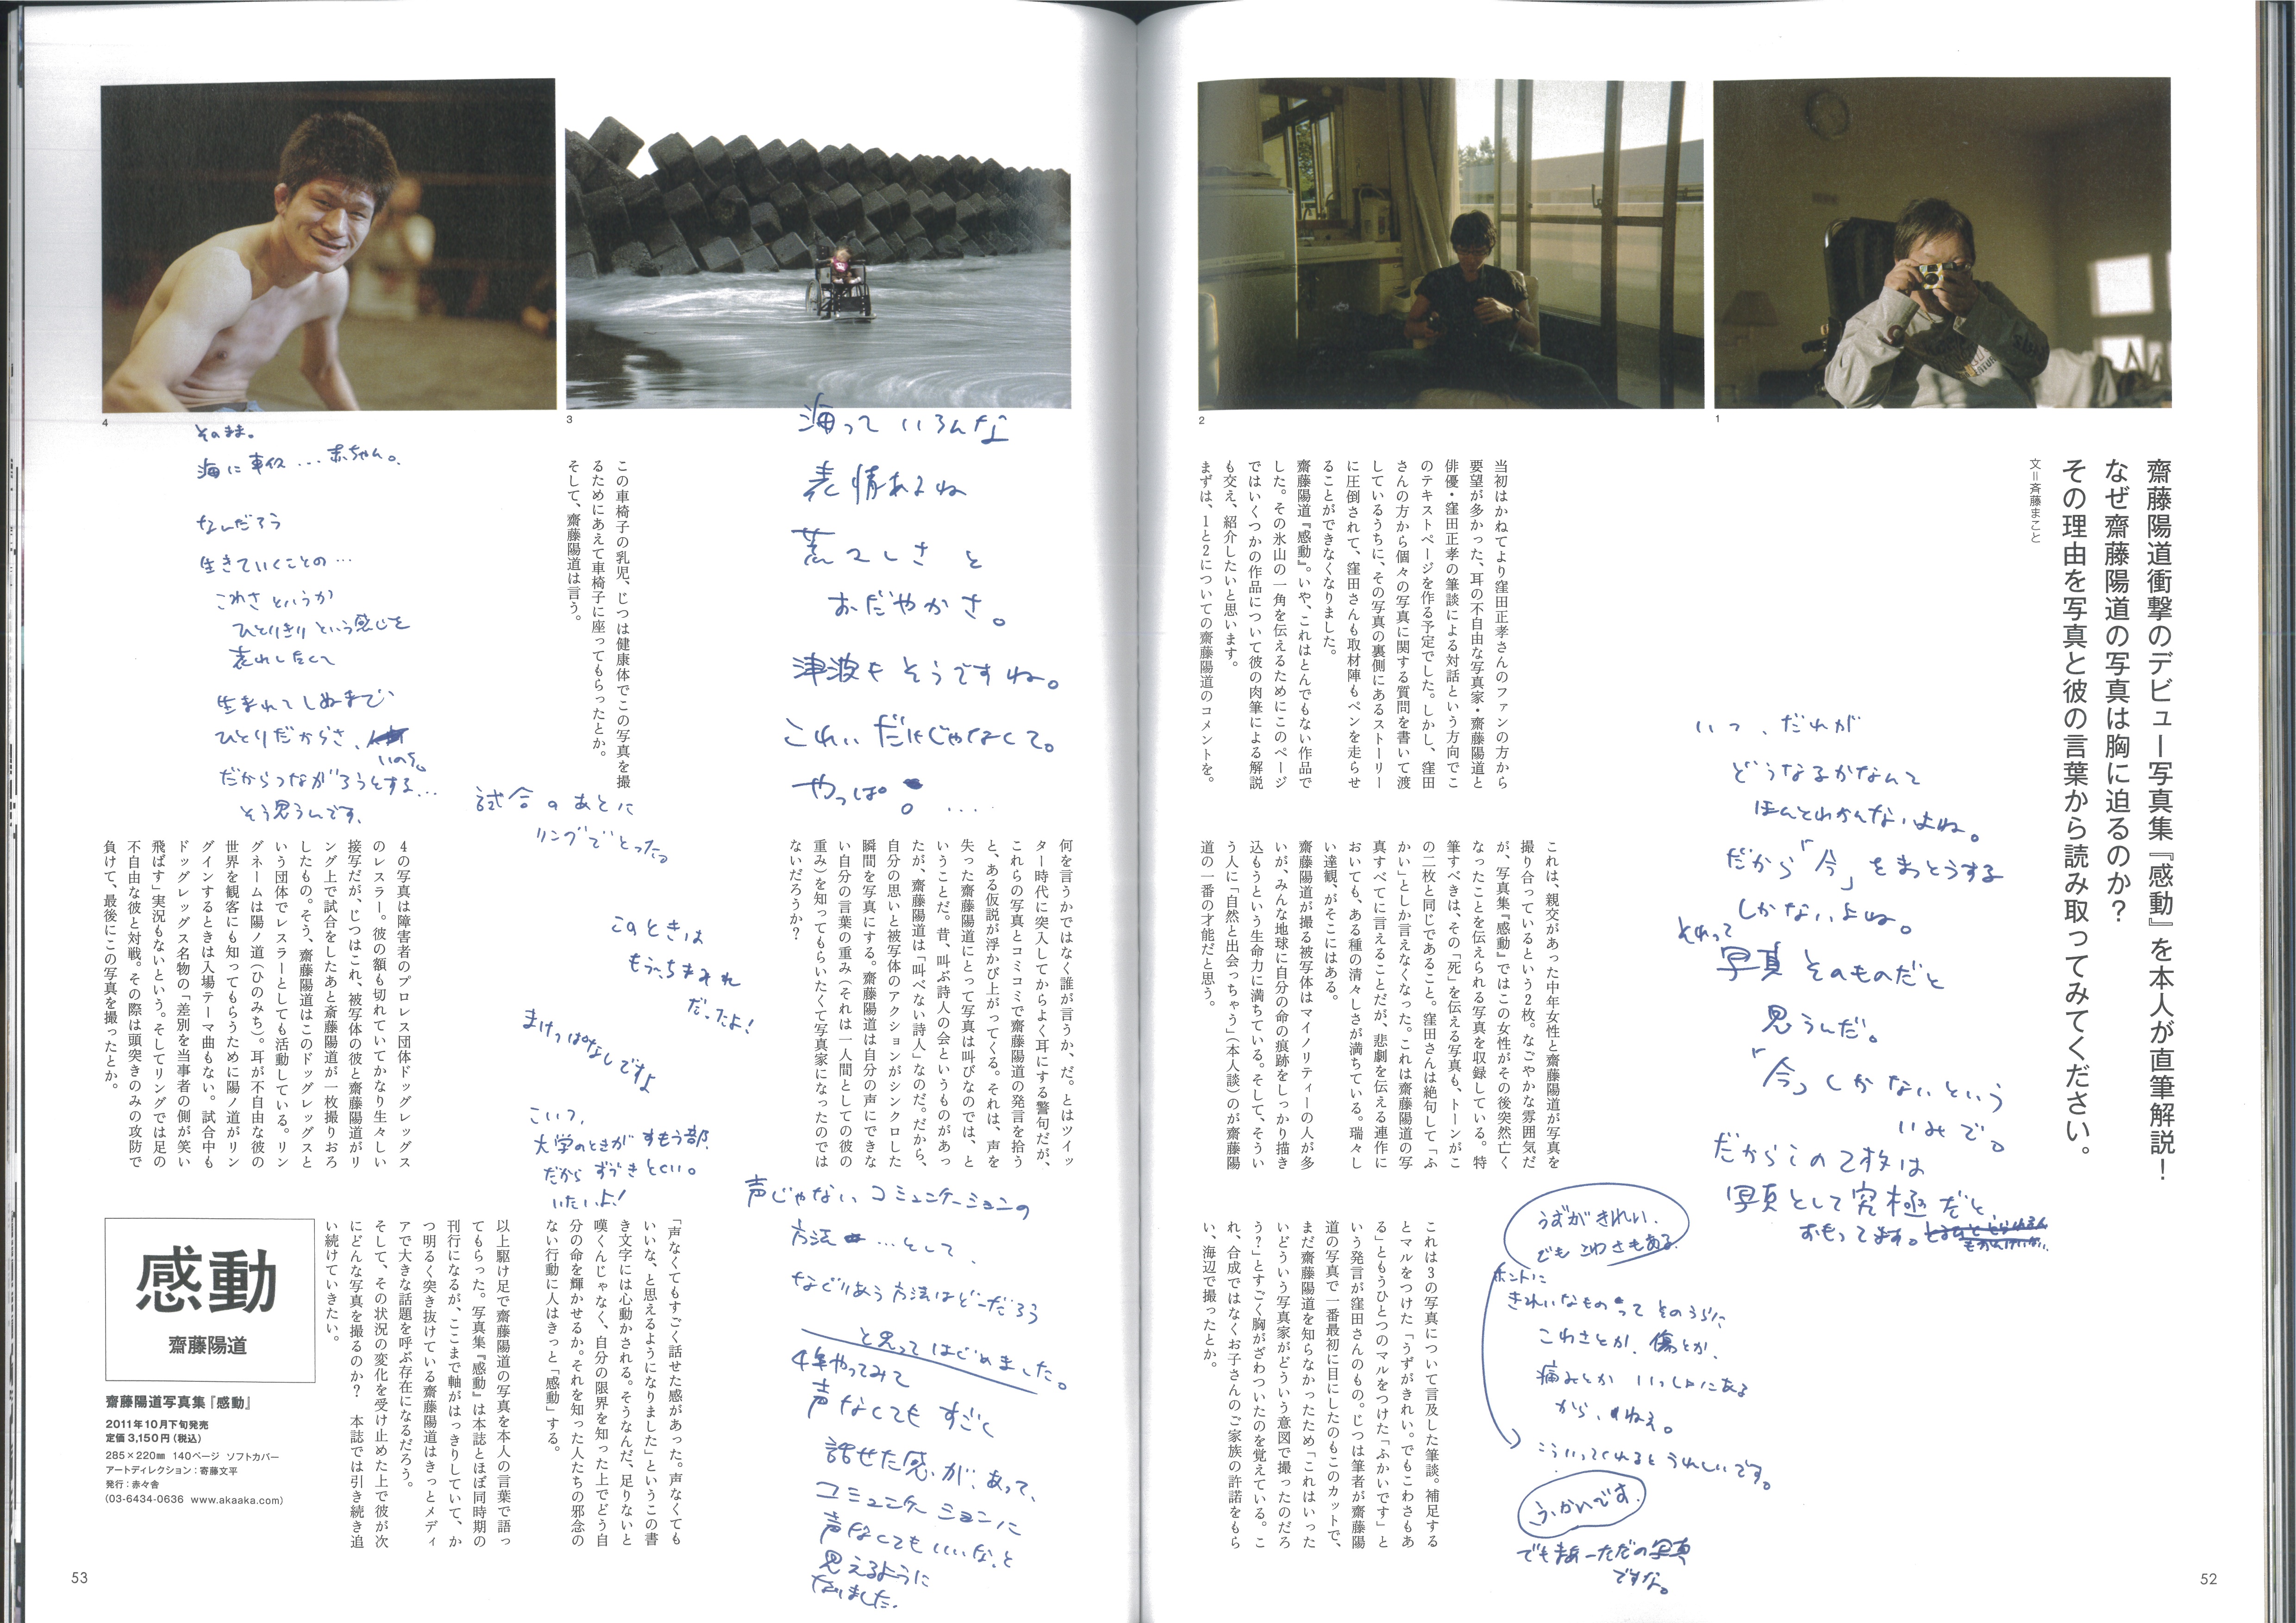 齋藤陽道衝撃のデビュー写真集『感動』を本人が直筆解説！
なぜ齋藤陽道の写真は胸に迫るのか？
その理由を写真と彼の言葉から読み取ってみてください。
文＝斉藤まこと
1
2
当初はかねてより窪田正孝さんのファンの方から
要望が多かった、耳の不自由な写真家・齋藤陽道と
俳優・窪田正孝の筆談による対話という方向でこ
のテキストページを作る予定でした。しかし、窪田
さんの方から個々の写真に関する質問を書いて渡
しているうちに、その写真の裏側にあるストーリー
に圧倒されて、窪田さんも取材陣もペンを走らせ
ることができなくなりました。
齋藤陽道『感動』。いや、これはとんでもない作品で
した。その氷山の一角を伝えるためにこのページ
ではいくつかの作品について彼の肉筆による解説
も交え、紹介したいと思います。
まずは、1と2についての齋藤陽道のコメントを。
いつ、だれが
どうなるかなんて
ほんとわかんないよね。
だから「今」をまっとうする
しかないよね。
それって
写真そのものだと
思うんだ。
「今」しかないという
いみで。
だからこの2枚は
写真として究極だと、
おもってます。
これは、親交があった中年女性と齋藤陽道が写真を
撮り合っているという2枚。なごやかな雰囲気だ
が、写真集『感動』ではこの女性がその後突然亡く
なったことを伝えられる写真を収録している。特
筆すべきは、その「死」を伝える写真も、トーンがこ
の二枚と同じであること。窪田さんは絶句して「ふ
かい」としか言えなくなった。これは齋藤陽道の写
真すべてに言えることだが、悲劇を伝える連作に
おいても、ある種の清々しさが満ちている。瑞々し
い達観、がそこにはある。
齋藤陽道が撮る被写体はマイノリティーの人が多
いが、みんな地球に自分の命の痕跡をしっかり描き
込もうという生命力に満ちている。そして、そうい
う人に「自然と出会っちゃう」（本人談）のが齋藤陽
道の一番の才能だと思う。
うずがきれい.
でもこわさもある.
ホントに
きれいなものってそのうらに
こわさとか、傷とか、
痛みとかいっしょにある
から、ねぇ。
こういってくれるとうれしいです。
ふかいです.
でもまあーただの写真
ですな。
これは3の写真について言及した筆談。補足する
とマルをつけた「うずがきれい。でもこわさもあ
る」ともうひとつのマルをつけた「ふかいです」と
いう発言が窪田さんのもの。じつは筆者が齋藤陽
道の写真で一番最初に目にしたのもこのカットで、
まだ齋藤陽道を知らなかったため「これはいった
いどういう写真家がどういう意図で撮ったのだろ
う？」とすごく胸がざわついたのを覚えている。こ
れ、合成ではなくお子さんのご家族の許諾をもら
い、海辺で撮ったとか。
52
3
4
海っていろんな
表情あるね
荒々しさと
おだやかさ。
津波もそうですね。
これいだけじゃなくて。
やっぱ
....
この車椅子の乳児、じつは健康体でこの写真を撮
るためにあえて車椅子に座ってもらったとか。
そして、齋藤陽道は言う。
そのまま。
海に車イス...赤ちゃん。
なんだろう
生きていくことの…
こわさというか
ひとりきりという感じを
表わしたくて
生まれてしぬまで
ひとりだからさ、
いのち。
だからつながろうとする...
そう思うんです。
何を言うかではなく誰が言うか、だ。とはツイッ
ター時代に突入してからよく耳にする警句だが、
これらの写真とコミコミで齋藤陽道の発言を拾う
と、ある仮説が浮かび上がってくる。それは、声を
失った齋藤陽道にとって写真は叫びなのでは、と
いうことだ。昔、叫ぶ詩人の会というものがあっ
たが、齋藤陽道は「叫べない詩人」なのだ。だから、
自分の思いと被写体のアクションがシンクロした
瞬間を写真にする。齋藤陽道は自分の声にできな
い自分の言葉の重み（それは一人間としての彼の
重み）を知ってもらいたくて写真家になったのでは
ないだろうか？
試合のあとに
リングでとったる
このときは
もうちまみれ
だったよ！
まけっぱなしですよ
こいつ、
大学のときがすもう部.
だからずつきとくい。
いたいよ！
4の写真は障害者のプロレス団体ドッグレッグス
のレスラー。彼の額も切れていてかなり生々しい
接写だが、じつはこれ、被写体の彼と齋藤陽道がリ
ング上で試合をしたあと斎藤陽道が一枚撮りおろ
したもの。そう、齋藤陽道はこのドッグレッグスと
いう団体でレスラーとしても活動している。リン
グネームは陽ノ道（ひのみち）。耳が不自由な彼の
世界を観客にも知ってもらうために陽ノ道がリン
グインするときは入場テーマ曲もない。試合中も
ドッグレッグス名物の「差別を当事者の側が笑い
飛ばす」実況もないという。そしてリングでは足の
不自由な彼と対戦。その際は頭突きのみの攻防で
負けて、最後にこの写真を撮ったとか。
声じゃないコミュニケーションの
方法 …として、
なぐりあう方法はどーだろう
と思ってはじめました。
4年やってみて
声なくてもすごく
話せた感が、あって、
コミュニケーションに
声なくてもいいな、と
思えるように
なりました.
「声なくてもすごく話せた感があった。声なくても
いいな、と思えるようになりました」というこの書
き文字には心動かされる。そうなんだ、足りないと
嘆くんじゃなく、自分の限界を知った上でどう自
分の命を輝かせるか。それを知った人たちの邪念の
ない行動に人はきっと「感動」する。
以上駆け足で齋藤陽道の写真を本人の言葉で語っ
てもらった。写真集『感動』は本誌とほぼ同時期の
刊行になるが、ここまで軸がはっきりしていて、か
つ明るく突き抜けている齋藤陽道はきっとメディ
アで大きな話題を呼ぶ存在になるだろう。
そして、その状況の変化を受け止めた上で彼が次
にどんな写真を撮るのか？　本誌では引き続き追
い続けていきたい。
感動
齋藤陽道
齋藤陽道写真集『感動』
2011年10月下旬発売
定価3,150円（税込）
285×220㎜ 140ページ ソフトカバー
アートディレクション：寄藤文平
発行：赤々舎
（03-6434-0636 www.akaaka.com）
53